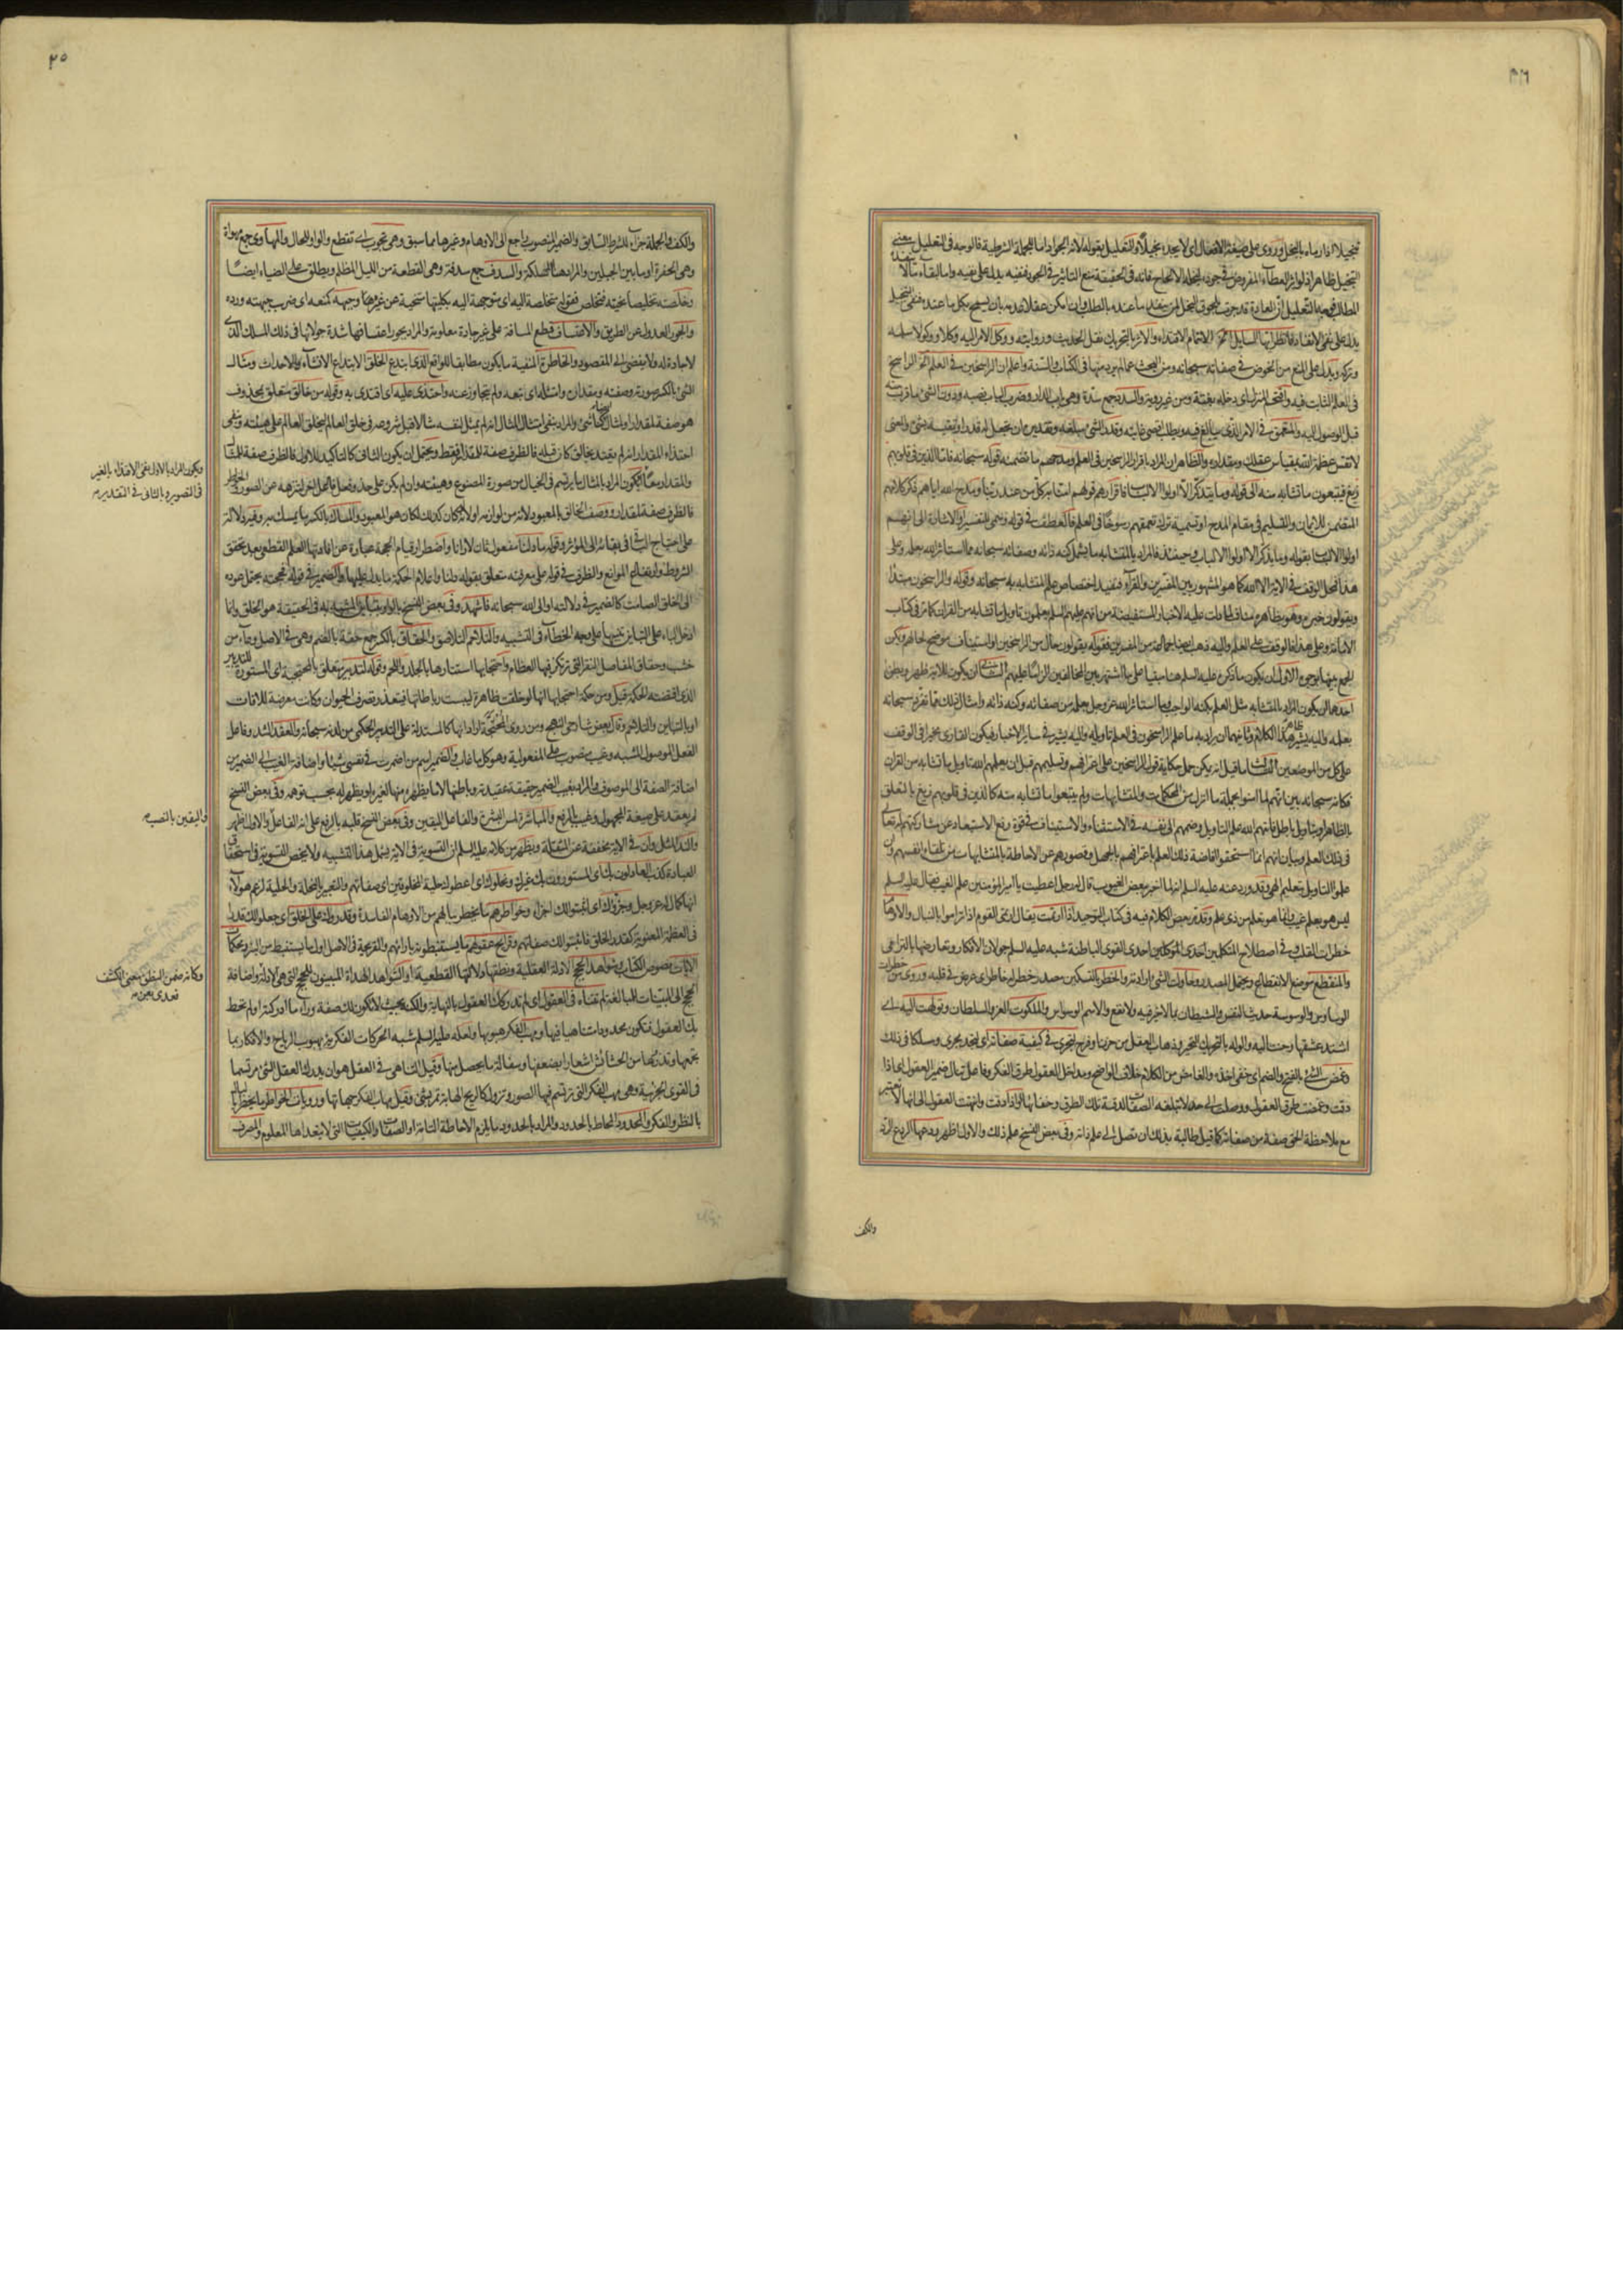 تبخيلا اذا رماه بالبخل وروى على صيغة الافعال اى لا يجده بخيلا والتعليل بقوله لانه الجواد اما للجملة الشرطية فالوجه فى التعليل بمعنى
التبخيل ظاهر اذ لو اثر العطاء المفروض فى جوده لبخله الالحاح فانه فى الحقيقة منع التاثير فى الجود فنفيه يدل على نفيه واما
المطلب فوجه التعليل ان العادة قد جرت بلحوق البخل لمن ينفد ما عنده بالطلب وان امكن عقلا عدمه بان يسمح بكل ما عنده فنفى التبخيل
يدل على نفى الانفاد فانظر ايها السائل الخ الايتمام الاقتداء والاثر بالتحريك نقل الحديث وروايته ووكل الامر اليه وكلا ووكولا سلمه
وتركه ويدل على المنع من الخوض فى صفاته سبحانه ومن البحث عما لم يرد منها فى الكتاب والسنة واعلم ان الراسخين فى العلم الخ الراسخ
فى العلم الثابت فيه واقتحم المنزل اى دخله بغتة ومن غير روية والسدد جمع سدة وهى باب الدار وضرب الباب نصبه ودون الشئ ما قرب منه
قبل الوصول اليه والمتعمق فى الامر الذى يبالغ فيه ويطلب اقصى غايته وقدر الشئ مبلغه وتقديره ان يجعل له قدرا ويقيسه بشئ والمعنى
لا تقس عظمة الله بقياس عقلك ومقداره والظاهر ان المراد باقرار الراسخين فى العلم ومدحهم ما تضمنه قوله سبحانه فاما الذين فى قلوبهم
زيغ فيتبعون ما تشابه منه الى قوله وما يتذكر الا اولوا الالباب فاقرارهم قولهم امنا به كل من عند ربنا ومدح الله اياهم ذكر كلامهم
المتضمن للايمان والتسليم فى مقام المدح او تسمية ترك تعمقهم رسوخا فى العلم فالعطف فى قوله وسمى للتفسير او الاشارة الى انهم
اولوا الالباب بقوله وما يذكر الا اولوا الالباب وحينئذ فالمراد بالمتشابه ما يشمل كنه ذاته وصفاته سبحانه مما استاثر الله بعلمه وعلى
هذا فمحل الوقف فى الاية الا الله كما هو المشهور بين المفسرين والقراء فتفيد اختصاص علم المتشابه به سبحانه وقوله والراسخون مبتدأ
ويقولون خبره وهو بظاهره مناف لما دلت عليه الاخبار المستفيضة من انهم عليهم السلم يعلمون تاويل ما تشابه من القران كما مر فى كتاب
الامامة وعلى هذا فالوقف على العلم واليه ذهب ايضا جماعة من المفسرين فقوله يقولون حال من الراسخين او استيناف موضح لحالهم ويمكن
الجمع بينها بوجوه الاول ان يكون ما ذكره عليه السلم هنا مبنيا على ما اشتهر بين المخالفين الزاما عليهم الثانى ان يكون للاية ظهر وبطن
احدهما ان يكون المراد بالمتشابه مثل العلم بكنه الواجب وما استاثر الله عز وجل بعلمه من صفاته وكنه ذاته وامثال ذلك مما تفرد سبحانه
بعلمه واليه يشير ظاهر هذا الكلام وثانيهما ان يراد به ما علم الراسخون فى العلم تاويله واليه يشير فى ساير الاخبار فيكون القارى مخيرا فى الوقف
على كل من الموضعين الثالث ما قيل انه يمكن حمل حكاية قول الراسخين على اعترافهم وتسليمهم قبل ان يعلمهم الله تاويل ما تشابه من القران
فكانه سبحانه بين انهم لما امنوا بجملة ما انزل من المحكمات والمتشابهات ولم يتبعوا ما تشابه منه كالذين فى قلوبهم زيغ بالتعلق
بالظاهر او بتاويل باطل فاتهم الله علم التاويل وضمهم الى نفسه فى الاستثناء والاستيناف فى قوة رفع الاستبعاد عن مشاركتهم له تعالى
فى ذلك العلم وبيان انهم انما استحقوا افاضة ذلك العلم باعترافهم بالجهل وقصورهم عن الاحاطة بالمتشابهات من تلقاء انفسهم وان
علموا التاويل بتعليم الهى وقد ورد عنه عليه السلم انه لما اخبر ببعض الغيوب قال له رجل اعطيت يا امير المؤمنين علم الغيب فقال عليه السلم
ليس هو بعلم غيب وانما هو تعلم من ذى علم وقد مر بعض الكلام فيه فى كتاب التوحيد اذا ارتمت يقال ارتمى القوم اذا تراموا بالنبال والاوهام
خطرات القلب وفى اصطلاح المتكلمين احدى القوى الباطنة شبه عليه السلم جولان الافكار وتعارضها بالترامى
والمنقطع موضع الانقطاع ويحتمل المصدر وحاولت الشئ اى اردته والخطر بالتسكين مصدر خطر له خاطر اى عرض فى قلبه وروى من خطرات
الوساوس والوسوسة حديث النفس والشيطان بما لا خير فيه ولا نفع والاسم الوسواس والملكوت العز والسلطان وتولهت اليه اى
اشتد عشقها وحنت اليه والوله بالتحريك التحير وذهاب العقل من حزن او فرح لتجرى فى كيفية صفاته اى لتجد مجرى ومسلكا فى ذلك
وغمض الشئ بالفتح والضم اى خفى ماخذه والغامض من الكلام خلاف الواضح ومداخل العقول طرق الفكر وفاعل تنال ضمير العقول اى اذا
دقت وغمضت طرق العقول ووصلت الى حد لا تبلغه الصفات لدقة تلك الطرق وخفائها او اذا دقت وانتهت العقول الى انها لا تعتبر
مع ملاحظة الحق صفة من صفاته كما قيل طالبة بذلك ان تصل الى علم ذاته وفى بعض النسخ علم ذلك والاول اظهر وردعها الردع الرد
والكف
٢٥
والكف والجملة جزاء للشرط السابق والضمير المنصوب راجع الى الاوهام وغيرها مما سبق وهى تجوب اى تقطع والواو للحال والمهاوى جمع مهواة
وهى الحفرة او ما بين الجبلين والمراد هنا المهلكة والسدف جمع سدفة وهى القطعة من الليل المظلم ويطلق على الضياء ايضا
وخلصه تخليصا نحيته فتخلص فقوله متخلصة اليه اى متوجهة اليه بكليتها متنحية عن غيرها وجبهه كمنعه اى ضرب جبهته ورده
والجور العدول عن الطريق والاعتساف قطع المسافة على غير جادة معلومة والمراد بجور اعتسافها شدة جولانها فى ذلك المسلك الذى
لا جادة له ولا يفضى الى المقصود والخاطرة المنفية ما يكون مطابقا للواقع الذى ابتدع الخلق الابتداع الانشاء والاحداث ومثال
الشئ بالكسر صورته وصفته ومقداره وامتثله اى تبعه ولم يتجاوز عنه واحتذى عليه اى اقتدى به وقوله من خالق متعلق بمحذوف
هو صفة لمقدار او لمثال ايضا كانشئ والمراد بنفى امتثال المثال انه لم يمثل لنفسه مثالا قبل شروعه فى خلق العالم ليخلق العالم على هيئته وبنفى
احتذاء المقدار انه لم يقتد بخالق كان قبله فالظرف صفة للمقدار فقط ويحتمل ان يكون الثانى كالتاكيد للاول فالظرف صفة للمثال
والمقدار معا فيكون المراد بالمثال ما يرتسم فى الخيال من صورة المصنوع وهيئته وان لم يكن على حذو فعل فاعل اخر لتنزهه عن الصور والخواطر
فالظرف صفة لمقدار ووصف الخالق بالمعبود لانه من لوازمه او لانه لو كان كذلك لكان هو المعبود والمساك بالكسر ما يمسك به وفيه دلالة
على احتياج الباقى فى بقائه الى المؤثر وقوله ما دلنا مفعول ثان لارانا واضطرار قيام الحجة عبارة عن افادتها العلم القطعى بعد تحقق
الشروط وارتفاع الموانع والظرف فى قوله على معرفته متعلق بقوله دلنا واعلام الحكمة ما يدل عليها والضمير فى قوله فحجته يحتمل عوده
الى الخلق الصامت كالضمير فى دلالته او الى الله سبحانه فاشهد وفى بعض النسخ بالواو بتباين المشبه به فى الحقيقة هو الخالق وانما
ادخل الباء على التباين تنبيها على وجه الخطاء فى التشبيه والتلاحم التلاصق والحقاق بالكسر جمع حقة بالضم وهى فى الاصل وعاء من
خشب وحقاق المفاصل النقر التى ترتكز فيها العظام واحتجابها استتارها بالجلد واللحم وقوله لتدبير متعلق بالمحتجبة اى المستورة للتدبير
الذى اقتضته الحكمة قيل ومن حكمة احتجابها انها لو خلقت ظاهرة ليبست رباطاتها فيتعذر تصرف الحيوان وكانت معرضة للافات
او بالتباين والتلاحم وقال بعض شارحى النهج ومن روى المحتجة اراد انها كالمستدلة على التدبير الحكمى من لدنه سبحانه والعقد الشد وفاعل
الفعل الموصول المشبه وغيب منصوب على المفعولية وهو كل ما غاب والضمير اسم من اضمرت فى نفسى شيئا واضافة الغيب الى الضمير من
اضافة الصفة الى الموصوف والمراد بغيب الضمير حقيقة عقيدته وباطنها لا ما يظهر منها لغيره او يظهر له بحسب توهمه وفى بعض النسخ
لم يعقد على صيغة المجهول وغيب بالرفع والمباشرة لمس البشرة والفاعل اليقين وفى بعض النسخ قلبه بالرفع على انه الفاعل والاول اظهر
والند المثل وان فى الاية مخففة عن المثقلة ويظهر من كلامه عليه السلم ان التسوية فى الاية يشمل هذا التشبيه ولا يخص التسوية فى استحقاق
العبادة كذب العادلون بك اى المسوون بك غيرك ونحلوك اى اعطوك حلية المخلوقين اى صفاتهم والتعبير بالنحلة والحلية لزعم هولاء
انها كمال له عز وجل وجزؤك اى اثبتوا لك اجزاء وخواطرهم ما يخطر ببالهم من الاوهام الفاسدة وقدروك على الخلقة اى جعلوا لك قدرا
فى العظمة المعنوية كقدر الخلق فاثبتوا لك صفاتهم وقرايح عقولهم ما يستنبطونه بارائهم والقريحة فى الاصل اول ما يستنبط من البئر ومحكمات
الايات نصوص الكتاب وشواهد الحجج الادلة العقلية ونطقها دلالتها القطعية او الشواهد الهداة المبينون للحجج التى هى الادلة واضافة
الحجج الى البينات للمبالغة لم تتناه فى العقول اى لم تدركك العقول بالنهاية والكنه بحيث لا تكون لك صفة وراء ما ادركته او لم تحط
بك العقول فتكون محدودا متناهيا فيها ومهب الفكر هبوبها ولعله عليه السلم شبه الحركات الفكرية بهبوب الرياح والافكار بما
تجمعها وتذرها من الحشائش اشعارا بضعفها وسفالة ما يحصل منها وقيل التناهى فى العقل هو ان يدرك العقل الشئ مرتسما
فى القوى الجزئية وهى مهب الفكر التى ترتسم فيها الصور وتزول كالريح الهابة تمر بشئ وقيل مهاب الفكر جهاتها ورويات الخواطر ما يخطر بالبال
بالنظر والفكر والمحدود المحاط بالحدود والمراد بالحدود ما يلزم الاحاطة التامة او الصفات والكيفيات التى لا يتعداها المعلوم والمصرف
ويكون المراد بالاول نفى الاقتداء بالغير
فى التصوير وبالثانى فى التقدير
واليقين بالنصب
وكانه ضمن النطق معنى الكشف
فعدى بعن